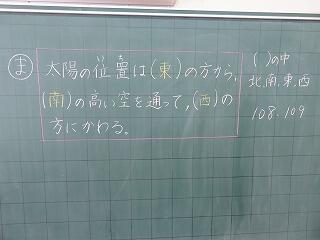 ま
太陽の位置は(東)の方から、
(南)の高い空を通って、(西)の
方にかわる。
( )の中
北、南、東、西
108、109